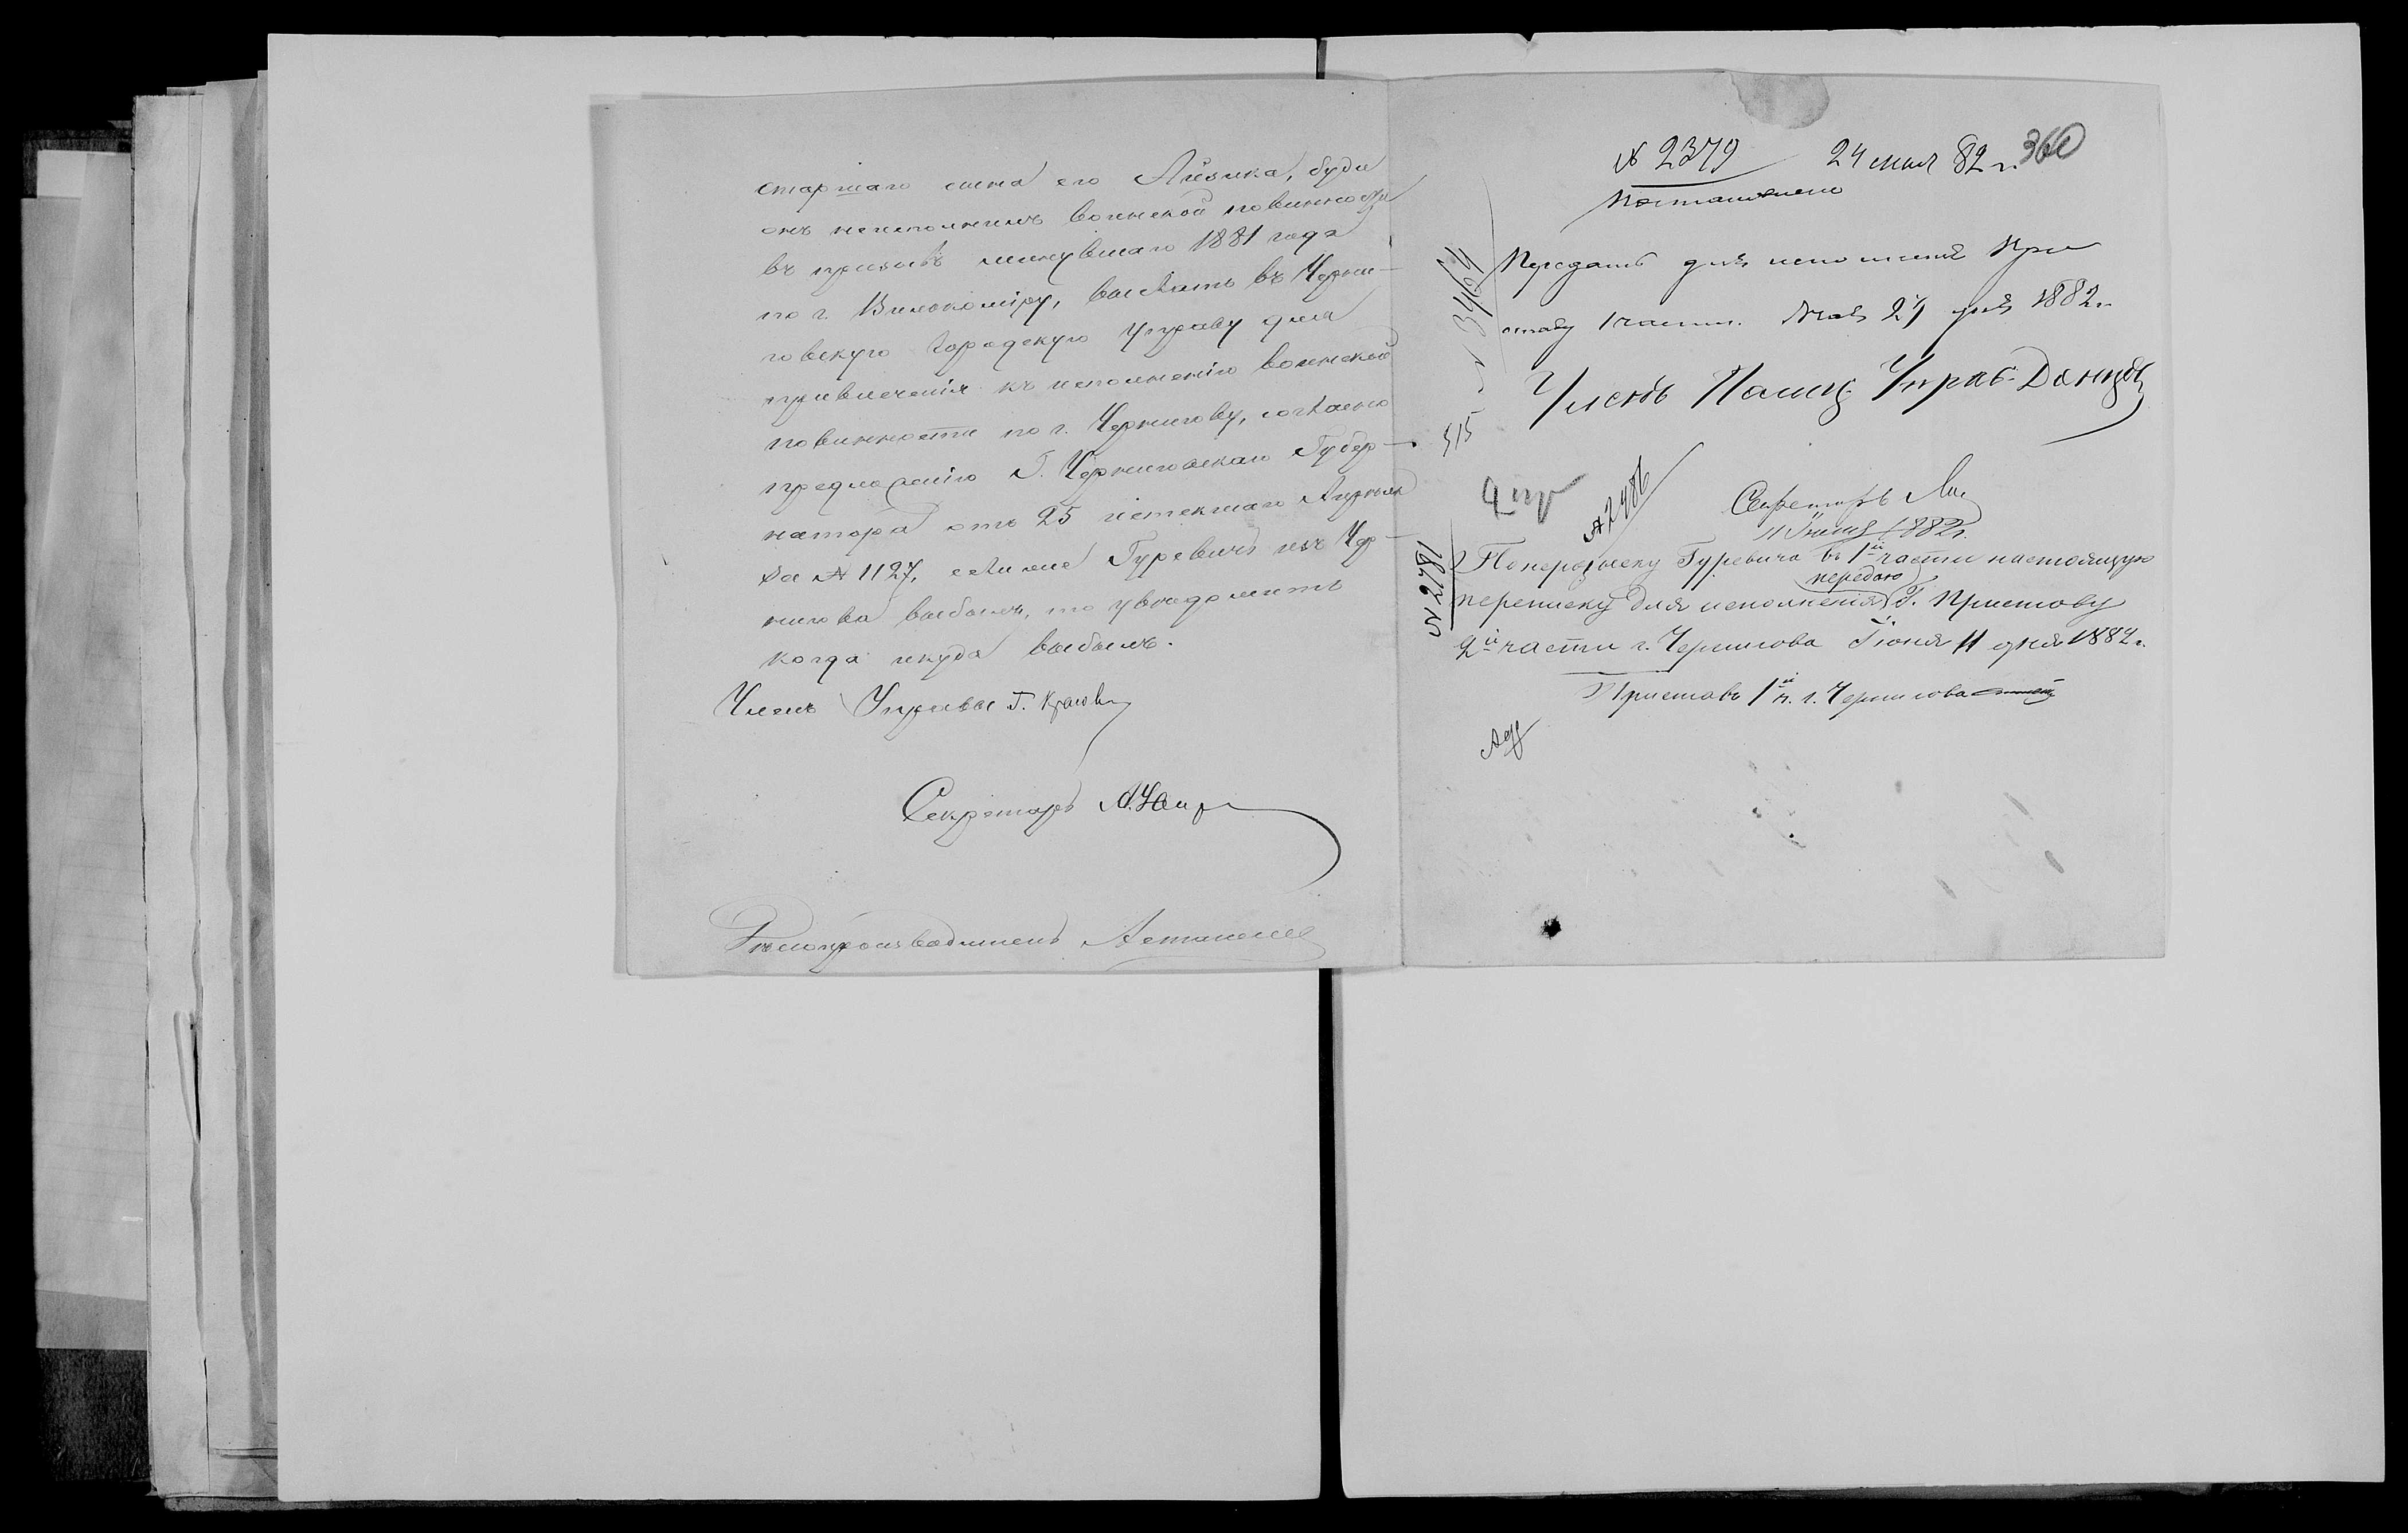 старшаго сына его Айзика, буде
онъ неисполнилъ воинской повинности
въ призывъ минувшаго 1881 года
по г. Вилькоміру, выслать въ Черни-
говскую Городскую Управу для
привлеченія къ исполненію воинской
повинности по г. Чернигову, согласно
предложенію Г. Черниговскаго Губер-
натора отъ 25 истекшаго Апрѣля
за № 1127, если же Гуревичъ изъ Чер-
нигова выбылъ, то увѣдомить
когда и куда выбылъ.
Членъ Управы Г.
Секретарь А.
Дѣлопроизводитель
№ 2379 24 мая 82 г. 360
Постановлено
Передать для исполненія При
ставу 1 части. Мая 24 дня 1882 г.
Членъ Полиц. Управ.
№ 3464
515
Секретарь
№ 2486
11 Іюня 1882 г.
№ 2781
По нерозыску Гуревича въ 1й части настоящую
переписку для исполненія передаю Г. Приставу
2й части г. Чернигова Іюня 11 дня 1882 г.
Приставъ 1й ч. г. Чернигова